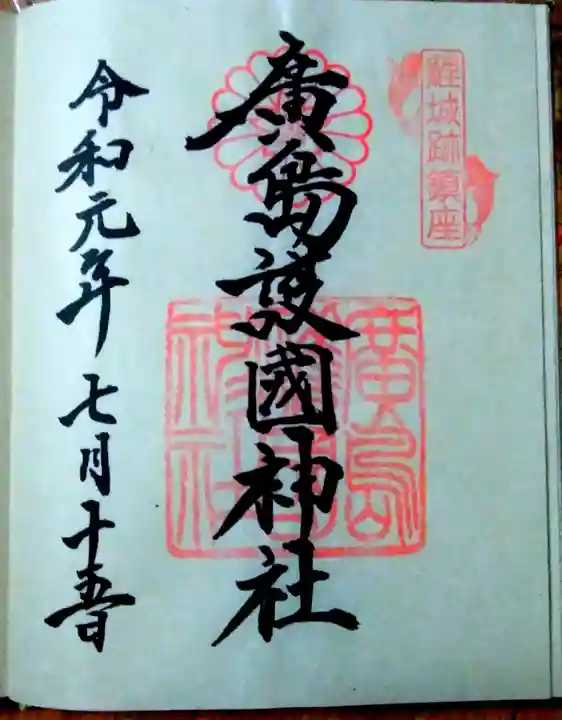 鯉城跡鎮座
廣島護國神社
令和元年七月十五日
廣島
護國
神社